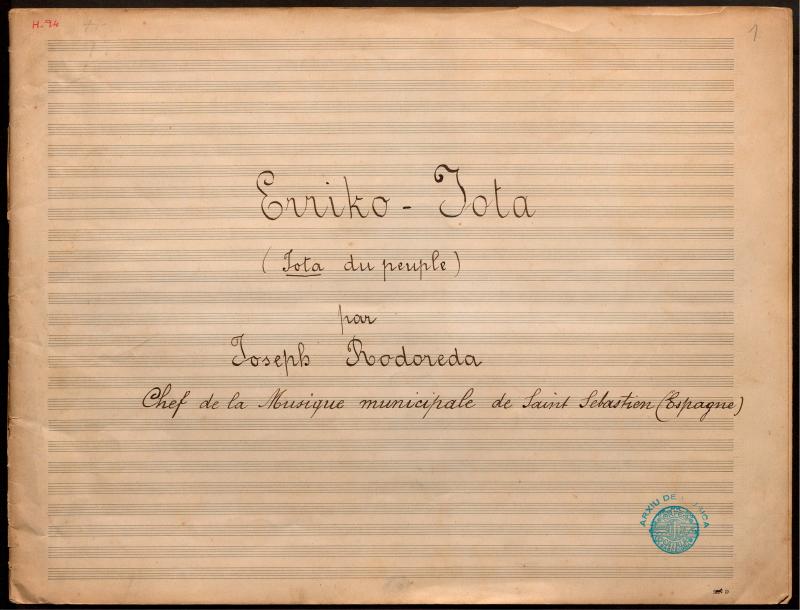 H-94
1
Erriko - Jota
(Jota du peuple)
par
Joseph Rodoreda
Chef de la Musique municipale de Saint Sebastien (Espagne)
ARXIU DE